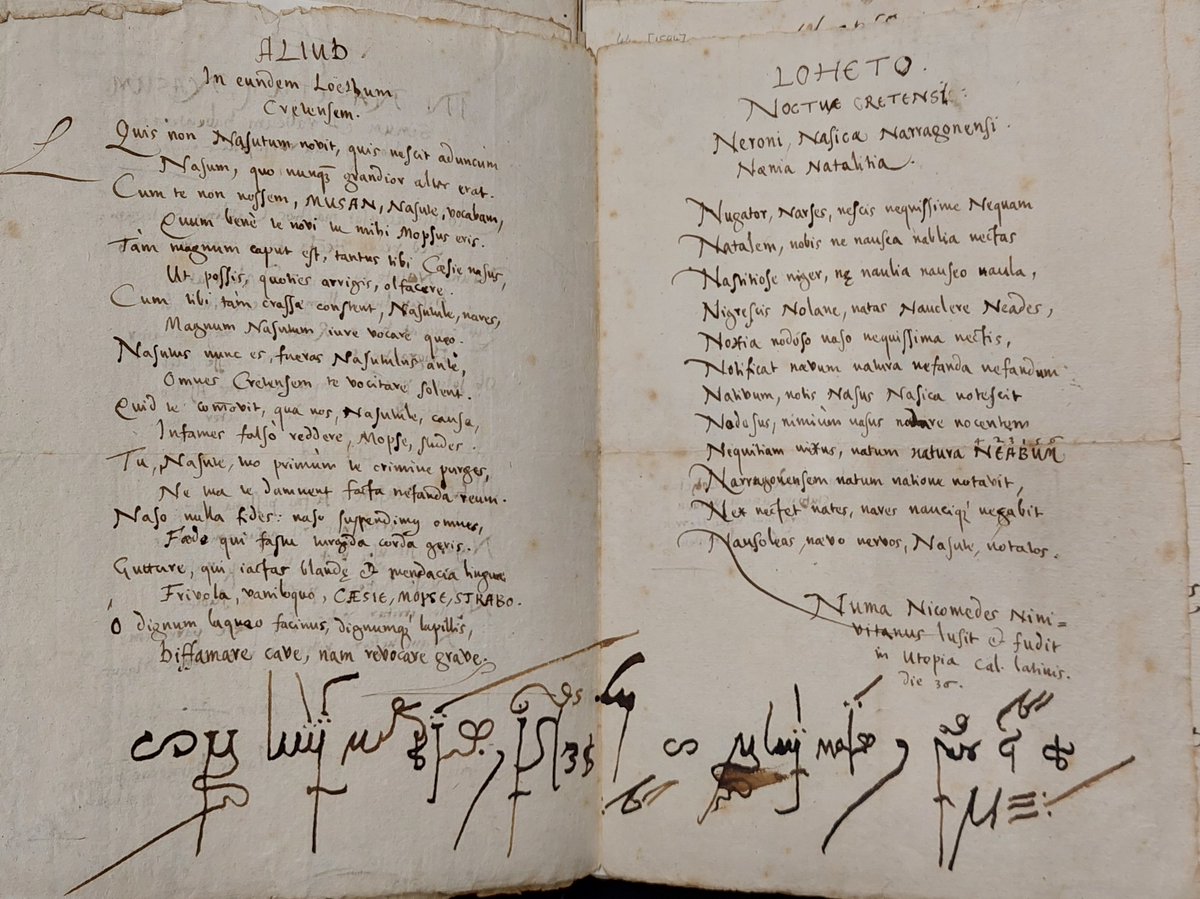 ALIUD.
In eundem Loethum
Cretensem.
Quis non Nasutum novit, quis nescit aduncum
Nasum, quo nunqͫ grandior alter erat.
Cum te non nossem, MUSAN, Nasute, vocabam,
Quum benè te novi tu mihi Mopsus eris.
Tàm magnum caput est, tantus tibi Cæsie nasus,
Ut possis, quoties arrigis, olfacere.
Cum tibi tam crassæ constent, Nasutule, nares,
Magnum Nasutum iure vocare queo.
Nasutus nunc es, fueras Nasutulus antè,
Omnes Cretensem te vocitare solent.
Quid te com̄ovit, qua nos, Nasutule, causa,
Infames falsò reddere, Mopse, studes.
Tu, Nasute, tuo primùm te crimine purges,
Ne tua te damnent facta nefanda reum.
Naso nulla fides: naso suspendimus omnes,
Fæde qui fastu turgida corda geris.
Gutture, qui iactas blandę & mendacia linguæ
Frivola, vaniloquo, CÆSIE, MOPSE, STRABO.
O dignum laqueo facinus, dignumqʒ lapillis,
Diffamare cave, nam revocare grave.
LOHETO.
NOCTUÆ CRETENSI:
Neroni, Nasica Narragonensi.
Nænia Natalitia.
Nugator, Narses, nescis nequissime Nequam
Natalem, nobis ne nausea nablia nectas
Nastitiose niger, nę naulia nauseo naula,
Nigrescis Nolane, natas Nauclere Neades,
Noxia nodoso naso nequissima nectis,
Notificat nævum natura nefanda nefandum
Nativum, notis Nasus Nasica notescit
Nodosus, nimiùm nasus notare nocentem
Nequitiam natum natura NEABUM
1 2 3 4 5 6
Narragonensem natum natione notavit,
Nex nectet nates, nares nauciqʒ negabit
Nausoleas, nævo nervos, Nasute, notatos.
Numa Nicomedes Nini=
vitanus lusit & fudit
in Utopia Cal. latinis.
die 36.